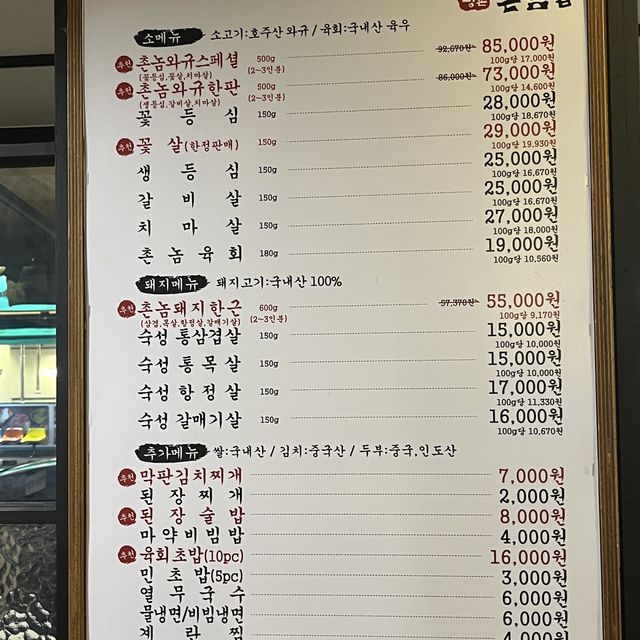 소메뉴 소고기:호주산 와규 / 육회:국내산 육우
추천 촌놈와규스페셜 500g 92,670원 85,000원
(꽃등심,꽃살,치마살) (2~3인분) 100g당 17,000원
추천 촌놈와규한판 500g 86,000원 73,000원
(생등심,갈비살,치마살) (2~3인분) 100g당 14,600원
꽃등심 150g 28,000원
100g당 18,670원
추천 꽃살(한정판매) 150g 29,000원
100g당 19,930원
생등심 150g 25,000원
100g당 16,670원
갈비살 150g 25,000원
100g당 16,670원
치마살 150g 27,000원
100g당 18,000원
촌놈육회 180g 19,000원
100g당 10,560원
돼지메뉴 돼지고기:국내산 100%
추천 촌놈돼지한근 600g 57,370원 55,000원
(삼겹,목살,항정살,갈매기살) (2~3인분) 100g당 9,170원
숙성 통삼겹살 150g 15,000원
100g당 10,000원
숙성 통목살 150g 15,000원
100g당 10,000원
숙성 항정살 150g 17,000원
100g당 11,330원
숙성 갈매기살 150g 16,000원
100g당 10,670원
추가메뉴 쌀:국내산 / 김치:중국산 / 두부:중국,인도산
추천 막판김치찌개 7,000원
된장찌개 2,000원
추천 된장술밥 8,000원
마약비빔밥 4,000원
추천 육회초밥(10pc) 16,000원
민초밥(5pc) 3,000원
열무국수 6,000원
물냉면/비빔냉면 6,000원
계란찜 4,000원